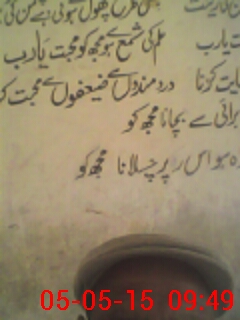 جس طرح پھول سے ہوتی ہے چمن کی
علم کی شمع سے ہو مجھ کو محبت یارب
ت یارب
یت کرنا دردمندوں سے ضعیفوں سے محبت ک
برائی سے بچانا مجھ کو
ہ ہو اس رہ پر چلانا مجھ کو
05-05-15 09:49